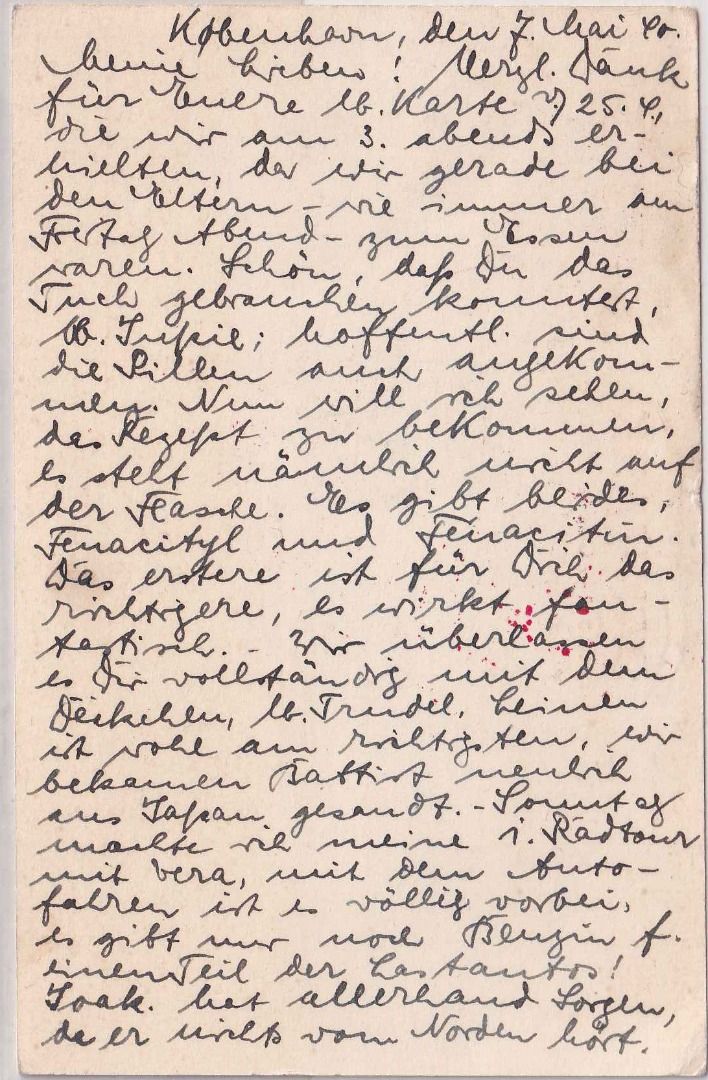 København, den 7. Mai 40.
Meine Lieben! Herzl. Dank
für Euere lb. Karte v. 25.4.,
die wir am 3. abends er-
hielten, da wir gerade bei
den Eltern - wie immer am
Freitag Abend - zum Essen
waren. Schön, daß Du das
Tuch gebrauchen konntest,
lb. ; hoffentl. sind
die Pillen auch angekom-
men. Nun will ich sehen,
das Rezept zu bekommen,
es steht nämlich nicht auf
der Flasche. Es gibt beides,
Fenacityl und Fenacitin.
Das erstere ist für Dich das
richtigere, es wirkt fan-
tastisch. - Wir überlassen
es Dir vollständig mit dem
Deckchen, lb. Trudel. Leinen
ist wohl am richtigsten, wir
bekamen Battist neulich
aus Japan gesandt. - Sonntag
machte ich meine 1. Radtour
mit Vera, mit dem Auto-
fahren ist es völlig vorbei,
es gibt nur noch Benzin f.
einen Teil der Lastautos!
Joak. hat allerhand Sorgen,
da er nichts vom Norden hört.